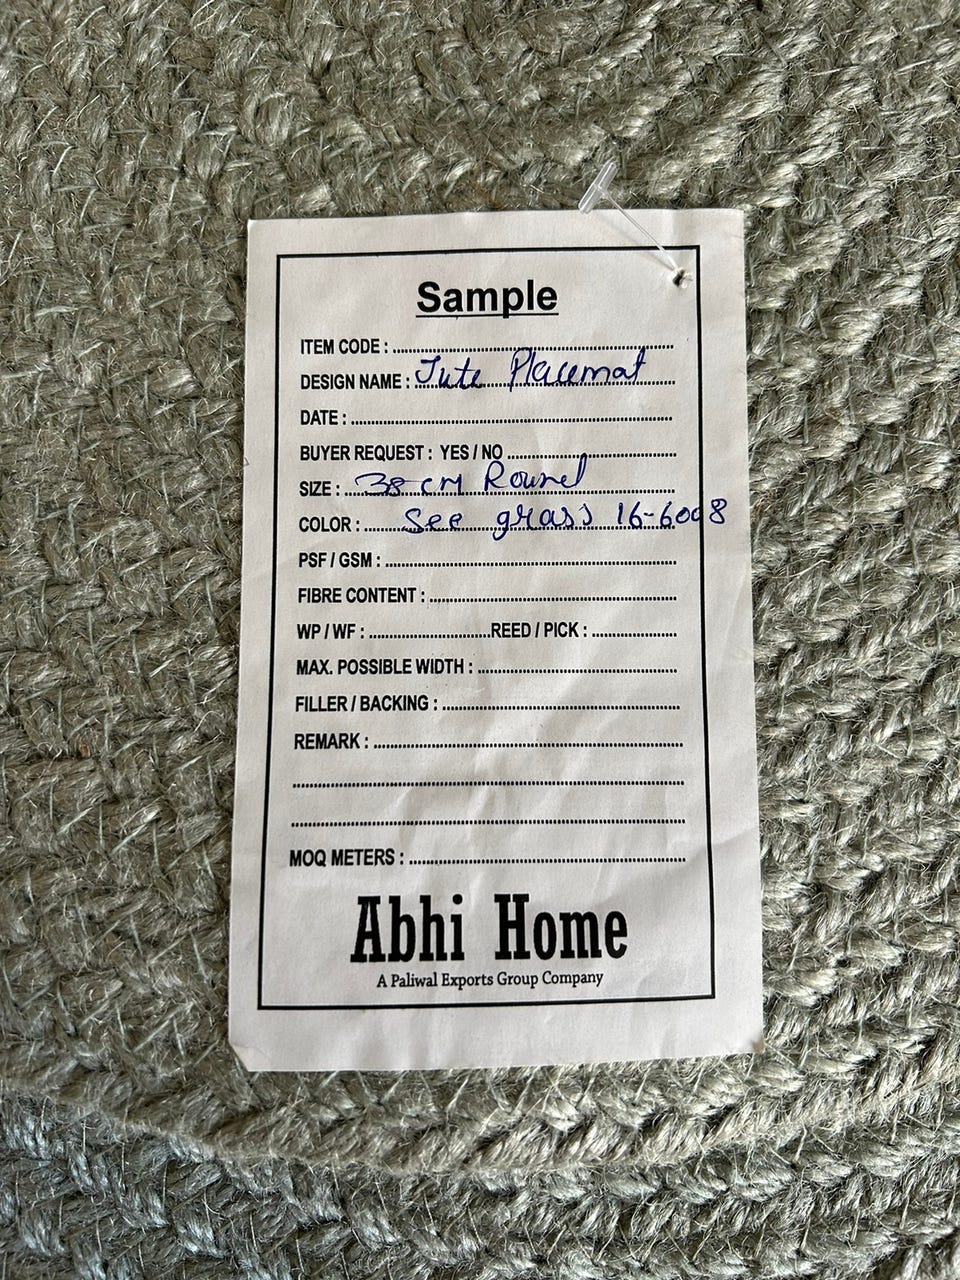 Sample
ITEM CODE :
DESIGN NAME : Jute Placemat
DATE :
BUYER REQUEST : YES / NO
SIZE : 38 cm Round
COLOR : See grass 16-6008
PSF / GSM :
FIBRE CONTENT :
WP / WF : REED / PICK :
MAX. POSSIBLE WIDTH :
FILLER / BACKING :
REMARK :
MOQ METERS :
Abhi Home
A Paliwal Exports Group Company